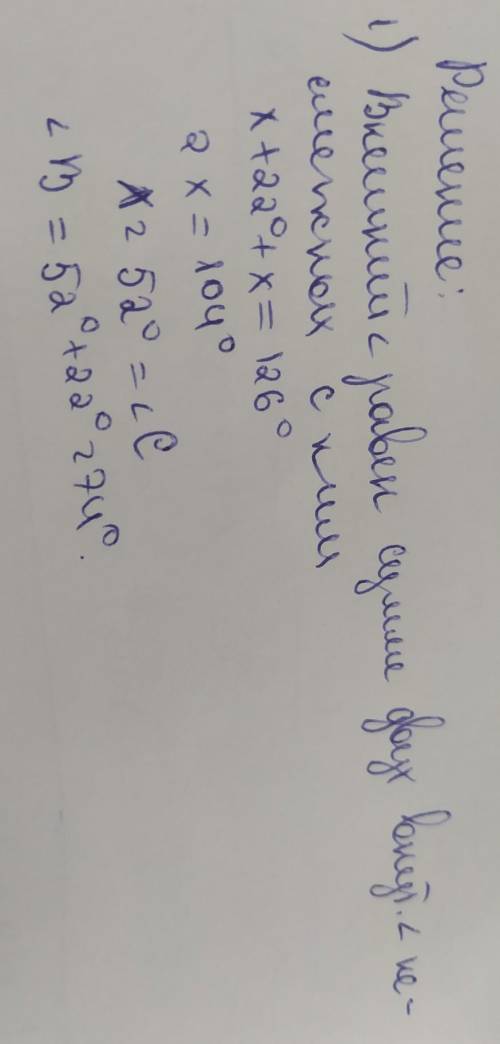 Решение:
1) Внешний < равен сумме двух внут. < не-
смежных с ним
x + 22° + x = 126°
2 x = 104°
x = 52° = <C
<B = 52° + 22° = 74°.